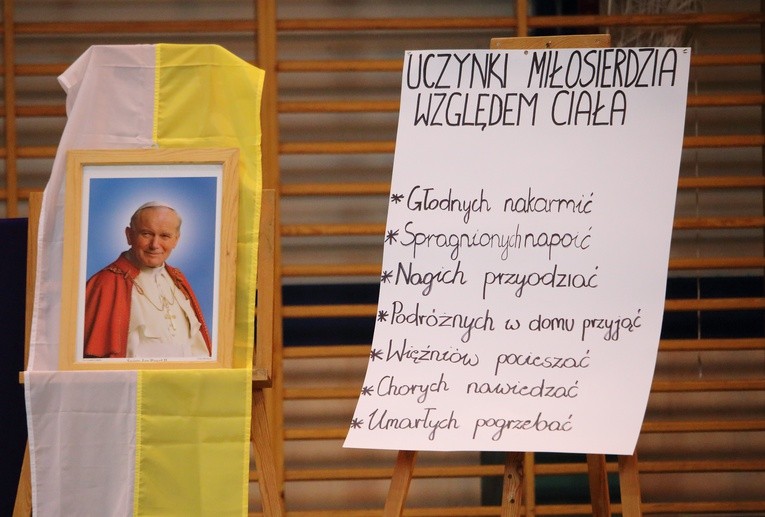 UCZYNKI MIŁOSIERDZIA
WZGLĘDEM CIAŁA
* Głodnych nakarmić
* Spragnionych napoić
* Nagich przyodziać
* Podróżnych w domu przyjąć
* Więźniów pocieszać
* Chorych nawiedzać
* Umarłych pogrzebać